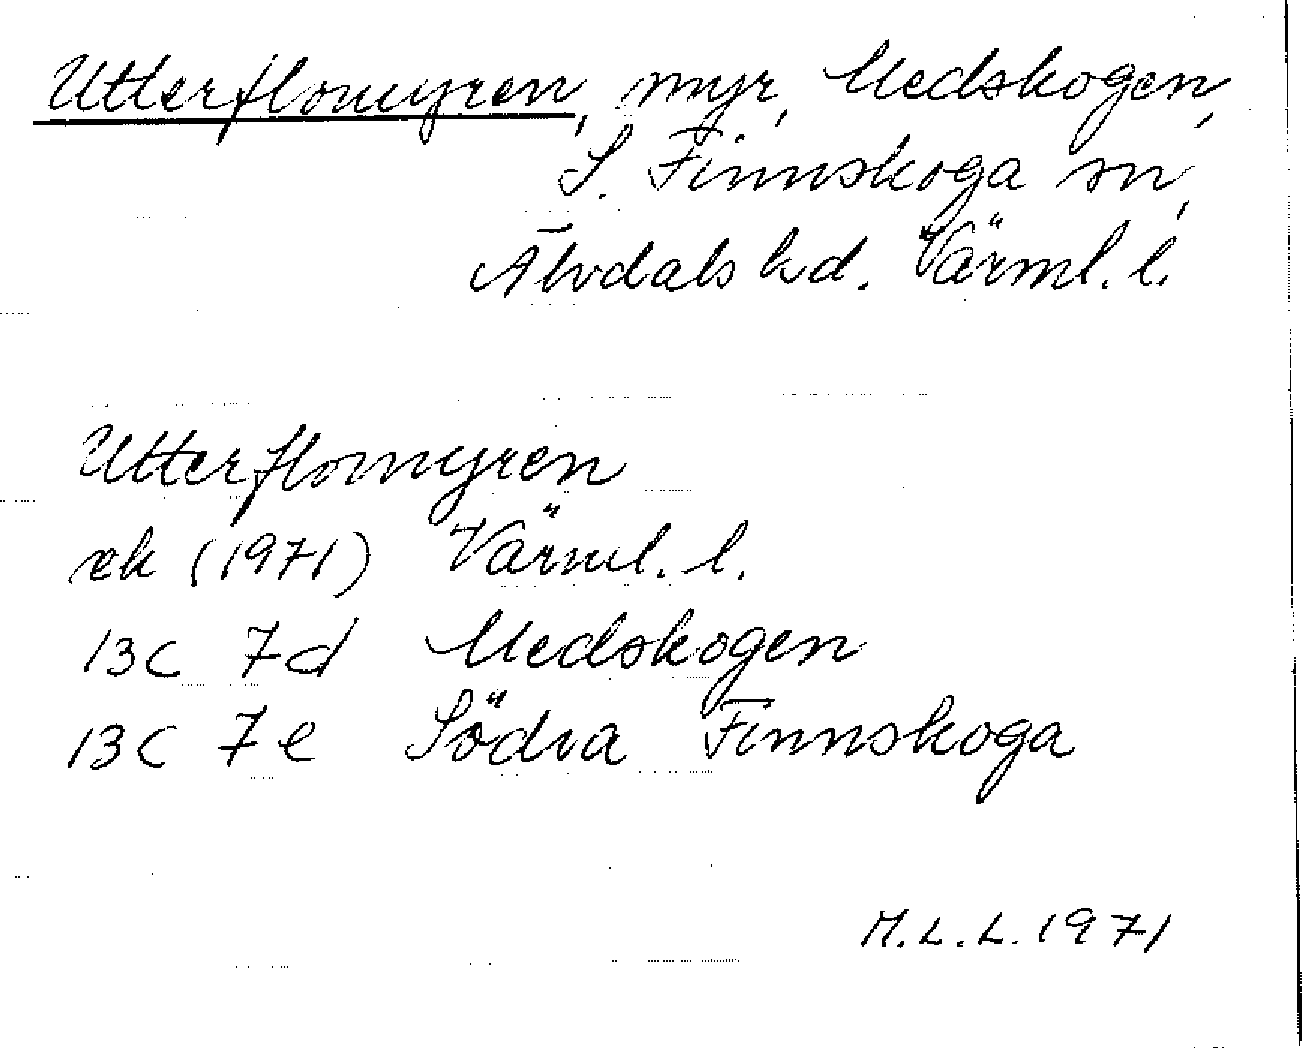 Utterflomyren, myr, Medskogen,
S. Finnskoga sn,
Älvdals hd. Värml. l.
Utterflomyren
ek (1971) Värml. l.
13C 7d Medskogen
13C 7e Södra Finnskoga
M.L.L. 1971